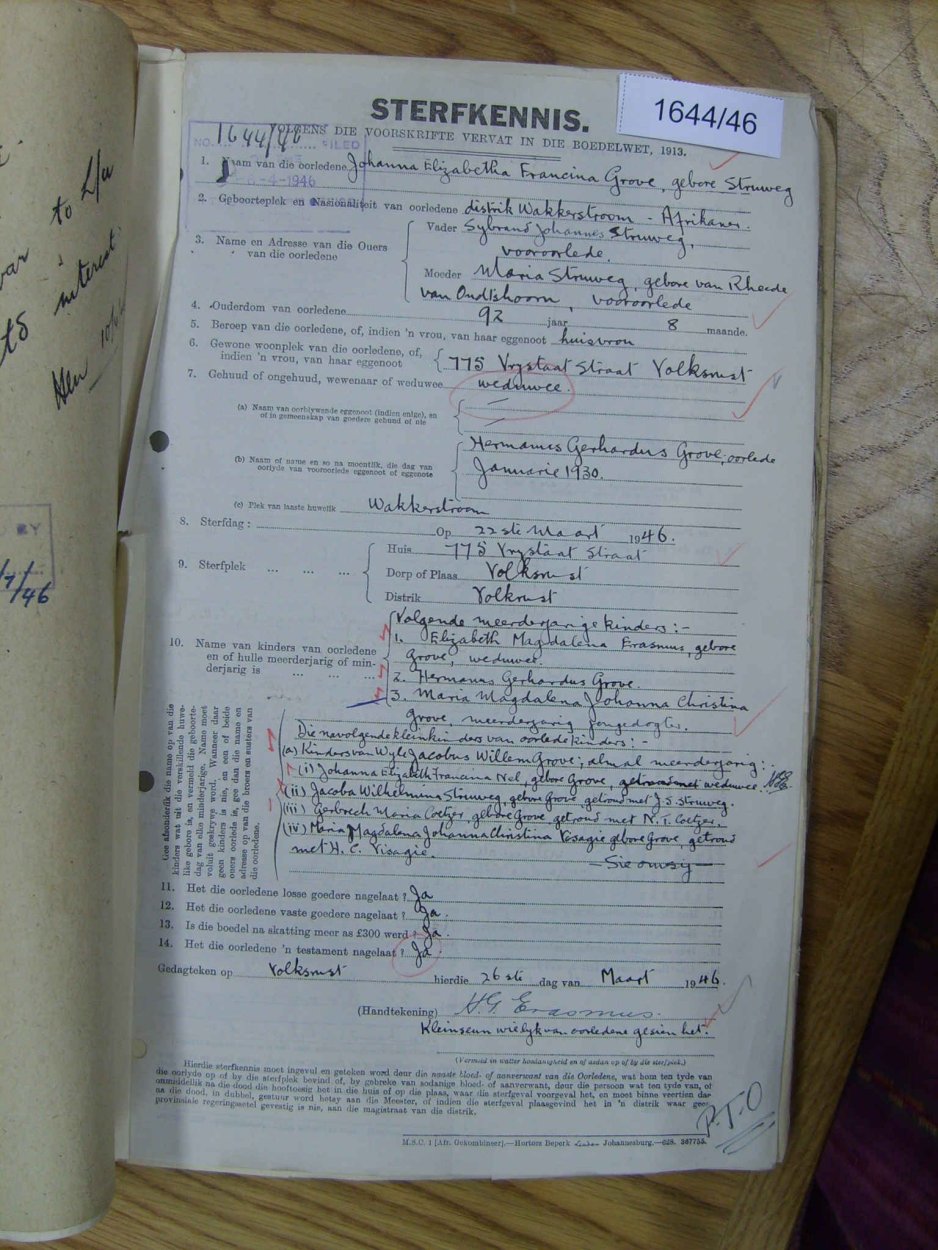 1644/46
STERFKENNIS.
VOLGENS DIE VOORSKRIFTE VERVAT IN DIE BOEDELWET, 1913.
NO. 1644/46 FILED
-4-1946
1. Naam van die oorledene Johanna Elizabetha Francina Grove, gebore Struweg
2. Geboorteplek en Nasionaliteit van oorledene distrik Wakkerstroom - Afrikaner.
3. Name en Adresse van die Ouers van die oorledene
Vader Sybrand Johannes Struweg,
vooroorlede.
Moeder Maria Struweg, gebore van Rheede
van Oudtshoorn, vooroorlede
4. Ouderdom van oorledene 92 jaar 8 maande.
5. Beroep van die oorledene, of, indien 'n vrou, van haar eggenoot huisvrou
6. Gewone woonplek van die oorledene, of, indien 'n vrou, van haar eggenoot 775 Vrystaat Straat Volksrust
7. Gehuud of ongehuud, wewenaar of weduwee weduwee
(a) Naam van oorblywende eggenoot (indien enige), en
of in gemeenskap van goedere gehuud of nie
(b) Naam of name en so na moontlik, die dag van
oorlyde van vooroorlede eggenoot of eggenote
Hermanus Gerhardus Grove, oorlede
Januarie 1930.
(c) Plek van laaste huwelik Wakkerstroom
8. Sterfdag: Op 22ste Maart 1946.
9. Sterfplek ... ... ...
Huis 775 Vrystaat Straat
Dorp of Plaas Volksrust
Distrik Volksrust
10. Name van kinders van oorledene
en of hulle meerderjarig of min-
derjarig is ... ... ...
Volgende meerderjarige kinders:-
1. Elizabeth Magdalena Erasmus, gebore
Grove, weduwee.
2. Hermanus Gerhardus Grove.
3. Maria Magdalena Johanna Christina
Grove, meerderjarig jongedogter.
Gee afsonderlik die name op van die
kinders wat uit die verskillende huwe-
like gebore is, en vermeld die geboorte-
dag van elke minderjarige. Name moet
voluit geskrywe word. Wanneer daar
geen kinders is nie, en een of beide
ouers oorlede is, gee dan die name en
adresse op van die broers en susters van
die oorledene.
Die navolgende kleinkinders van oorlede kinders:
(a) Kinders van Wyle Jacobus Willem Grove; almal meerderjarig:-
(i) Johanna Elizabeth Francina Nel, gebore Grove, getroud met weduwee.
(ii) Jacoba Wilhelmina Struweg, gebore Grove, getroud met J.S. Struweg.
(iii) Gerbrech Maria Coetzer, gebore Grove, getroud met N.T. Coetzer.
(iv) Maria Magdalena Johanna Christina Visagie gebore Grove, getroud
met H.C. Visagie.
—Sie omsy—
11. Het die oorledene losse goedere nagelaat? Ja
12. Het die oorledene vaste goedere nagelaat? Ja.
13. Is die boedel na skatting meer as £300 werd? Ja.
14. Het die oorledene 'n testament nagelaat? Ja.
Gedagteken op Volksrust hierdie 26ste dag van Maart 1946.
(Handtekening) H.G. Erasmus.
Kleinseun wie lyk van oorledene gesien het.
(Vermeld in watter hoedanigheid en of aldan op of by die sterfplek.)
Hierdie sterfkennis moet ingevul en geteken word deur die naaste bloed- of aanverwant van die Oorledene, wat hom ten tyde van
die oorlyde op of by die sterfplek bevind of, by gebreke van sodanige bloed- of aanverwant, deur die persoon wat ten tyde van, of
onmiddellik na die dood die hooftoesig het in die huis of op die plaas, waar die sterfgeval voorgeval het, en moet binne veertien dae
na die dood, in dubbel, gestuur word hetsy aan die Meester, of indien die sterfgeval plaasgevind het in 'n distrik waar geen
provinsiale regeringsetel gevestig is nie, aan die magistraat van die distrik.
P.T.O
M.S.C. 1 [Afr. Gekombineer].—Hortors Beperk Johannesburg.—628. 367755.
to L/a
interest
BY
/7/46